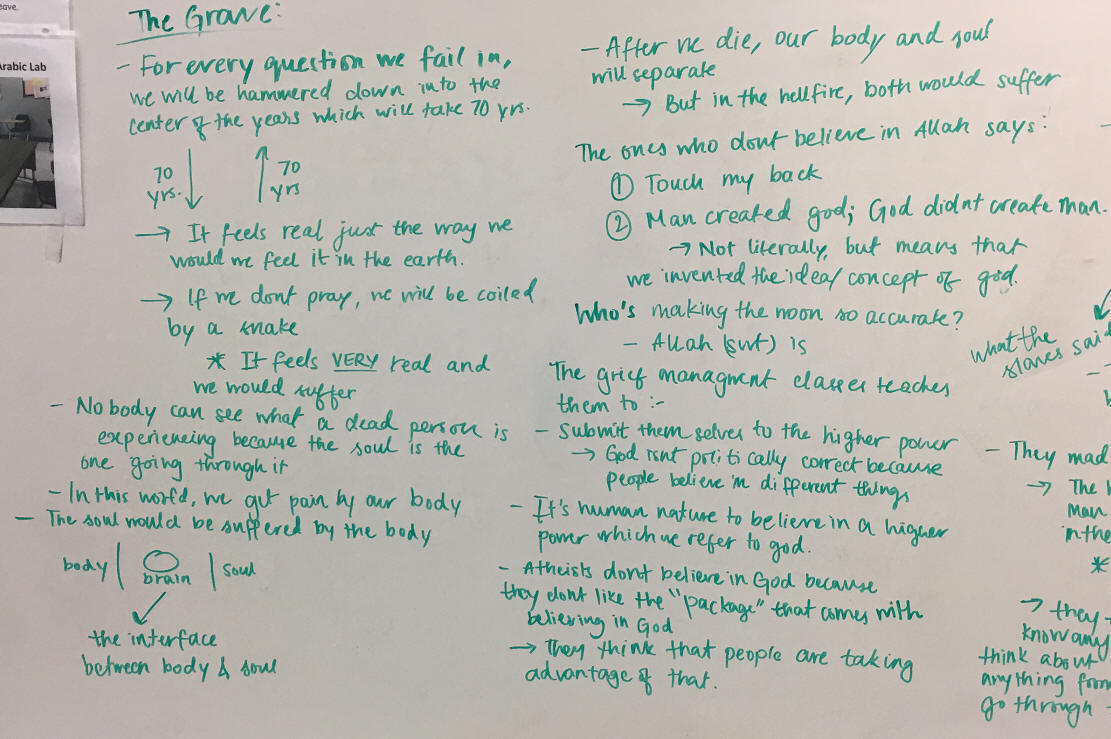 eave.
Arabic Lab
The Grave:
- For every question we fail in,
we will be hammered down into the
center of the years which will take 70 yrs.
70
yrs.
70
yrs
→ It feels real just the way we
would we feel it in the earth.
→ If we dont pray, we will be coiled
by a snake
* It feels VERY real and
we would suffer
- Nobody can see what a dead person is
experiencing because the soul is the
one going through it
- In this world, we get pain by our body
- The soul would be suffered by the body
body | brain | soul
the interface
between body & soul
- After we die, our body and soul
will separate
→ But in the hellfire, both would suffer
The ones who dont believe in Allah says:
① Touch my back
② Man created god; God didnt create man.
→ Not literally, but means that
we invented the idea/ concept of god.
Who's making the moon so accurate?
- Allah (swt) is
The grief managment classes teaches
them to :-
- Submit them selves to the higher power
→ God isnt politically correct because
people believe in different things
- It's human nature to believe in a higher
power which we refer to god.
- Atheists dont believe in God because
they dont like the "package" that comes with
believing in God
→ They think that people are taking
advantage of that.
What the
slaves said
- They mad
→ The
Man
in the
*
→ they
know any
think about
anything from
go through